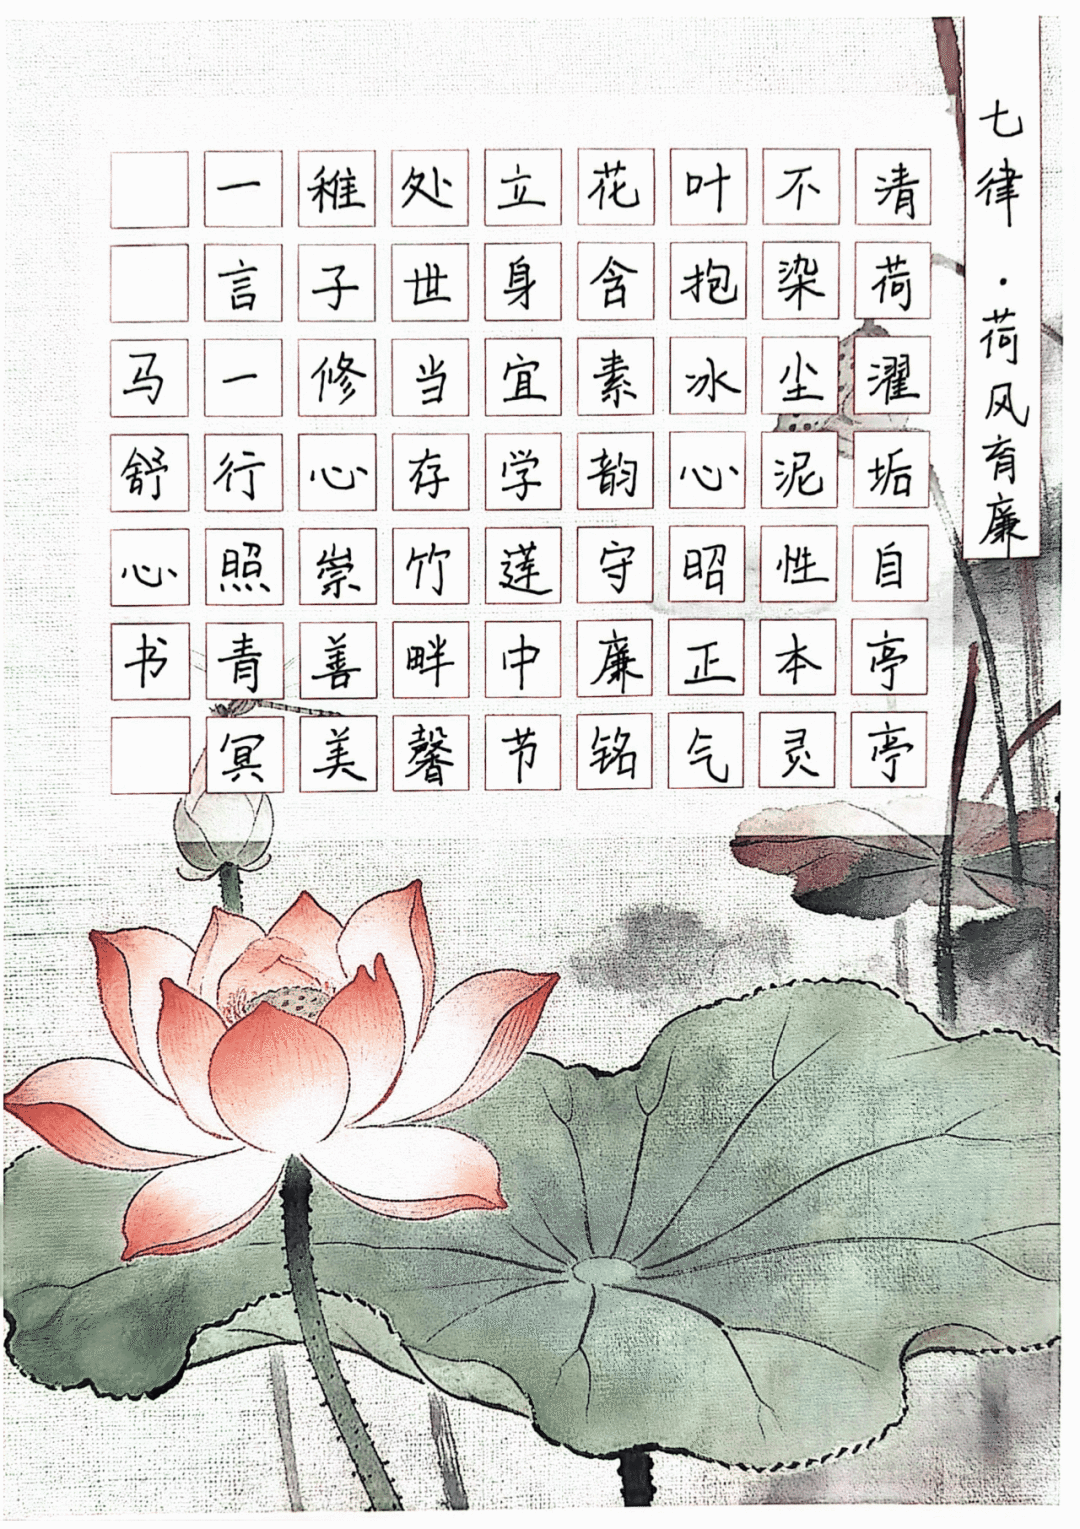 七律·荷风育廉
清荷濯垢自亭亭
不染尘泥性本灵
叶抱冰心昭正气
花含素韵守廉铭
立身宜学莲中节
处世当存竹畔馨
稚子修心崇善美
一言一行照青冥
马舒心书